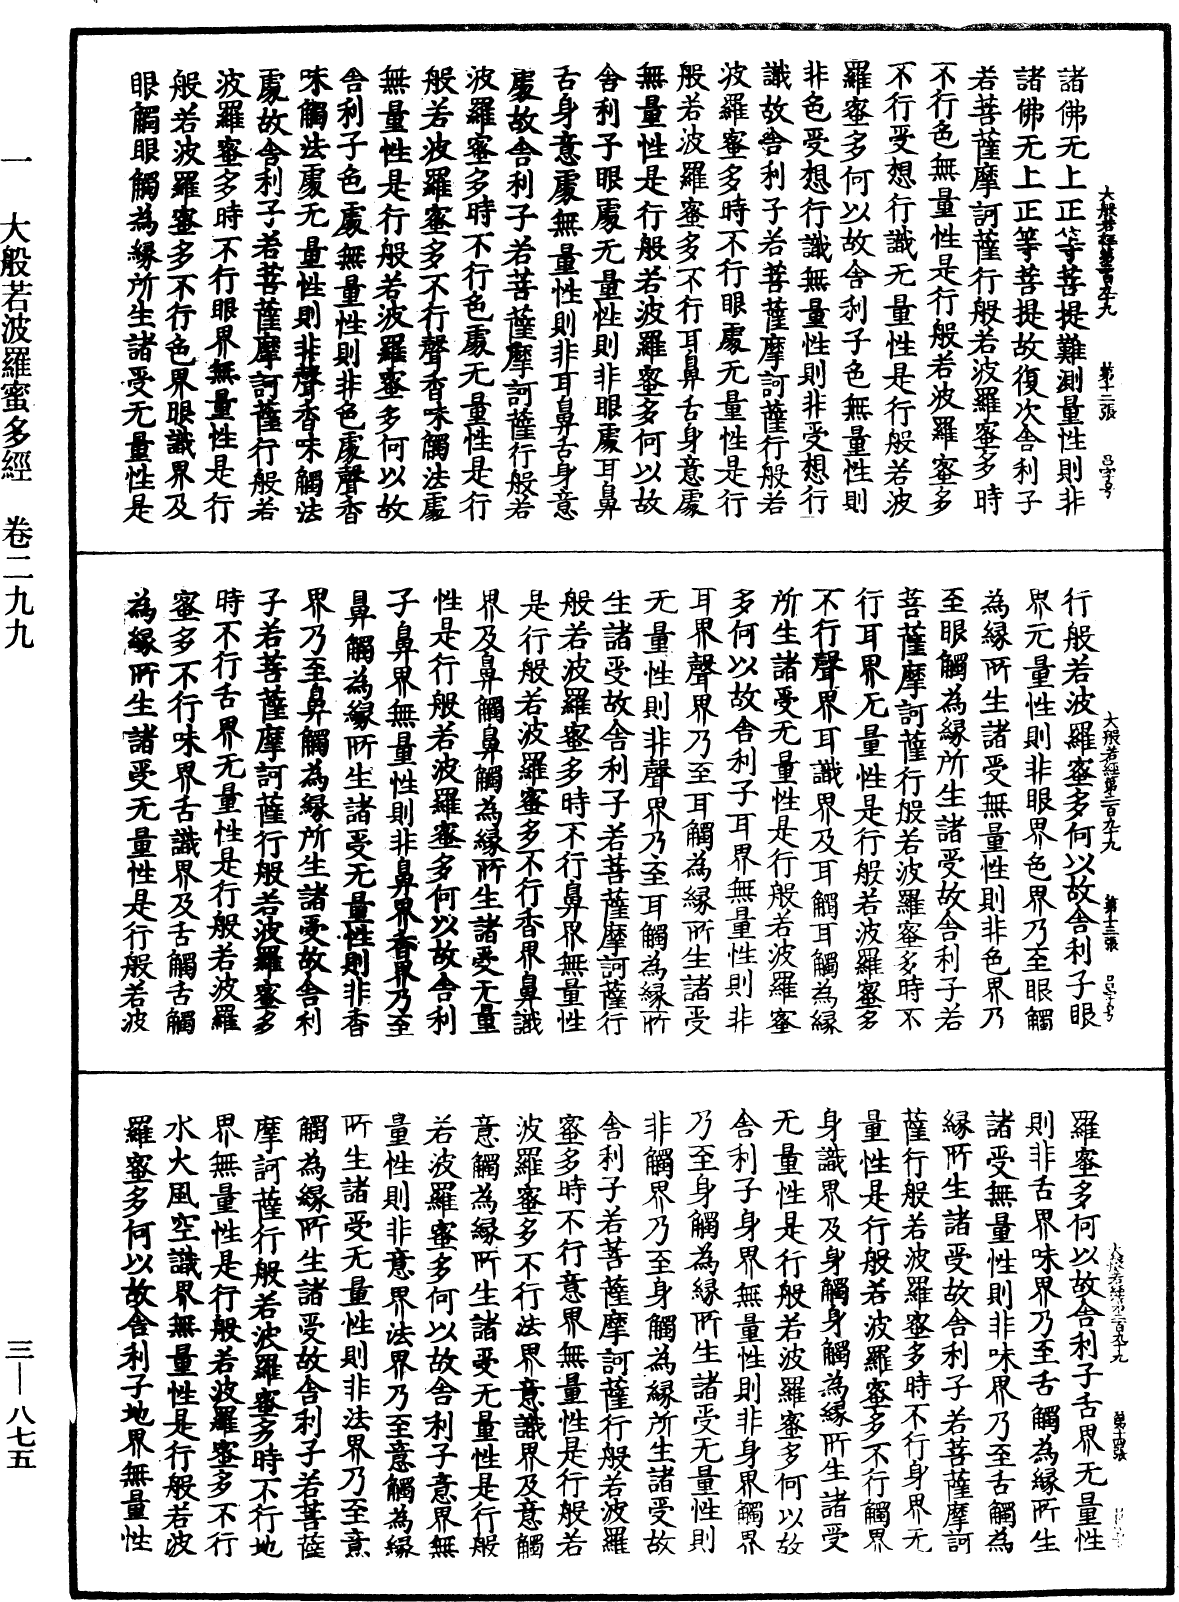 大般若經第二百九十九　第十二張　呂字号
諸佛无上正等菩提難測量性則非
諸佛无上正等菩提故復次舍利子
若菩薩摩訶薩行般若波羅蜜多時
不行色無量性是行般若波羅蜜多
不行受想行識无量性是行般若波
羅蜜多何以故舍利子色無量性則
非色受想行識無量性則非受想行
識故舍利子若菩薩摩訶薩行般若
波羅蜜多時不行眼處无量性是行
般若波羅蜜多不行耳鼻舌身意處
無量性是行般若波羅蜜多何以故
舍利子眼處无量性則非眼處耳鼻
舌身意處無量性則非耳鼻舌身意
處故舍利子若菩薩摩訶薩行般若
波羅蜜多時不行色處无量性是行
般若波羅蜜多不行聲香味觸法處
無量性是行般若波羅蜜多何以故
舍利子色處無量性則非色處聲香
味觸法處无量性則非聲香味觸法
處故舍利子若菩薩摩訶薩行般若
波羅蜜多時不行眼界無量性是行
般若波羅蜜多不行色界眼識界及
眼觸眼觸為緣所生諸受无量性是
大般若經第二百九十九　第十三張　呂字号
行般若波羅蜜多何以故舍利子眼
界无量性則非眼界色界乃至眼觸
為緣所生諸受無量性則非色界乃
至眼觸為緣所生諸受故舍利子若
菩薩摩訶薩行般若波羅蜜多時不
行耳界无量性是行般若波羅蜜多
不行聲界耳識界及耳觸耳觸為緣
所生諸受无量性是行般若波羅蜜
多何以故舍利子耳界無量性則非
耳界聲界乃至耳觸為緣所生諸受
无量性則非聲界乃至耳觸為緣所
生諸受故舍利子若菩薩摩訶薩行
般若波羅蜜多時不行鼻界無量性
是行般若波羅蜜多不行香界鼻識
界及鼻觸鼻觸為緣所生諸受无量
性是行般若波羅蜜多何以故舍利
子鼻界無量性則非鼻界香界乃至
鼻觸為緣所生諸受无量性則非香
界乃至鼻觸為緣所生諸受故舍利
子若菩薩摩訶薩行般若波羅蜜多
時不行舌界无量性是行般若波羅
蜜多不行味界舌識界及舌觸舌觸
為緣所生諸受无量性是行般若波
大般若經第二百九十九　第十四張
羅蜜多何以故舍利子舌界无量性
則非舌界味界乃至舌觸為緣所生
諸受無量性則非味界乃至舌觸為
緣所生諸受故舍利子若菩薩摩訶
薩行般若波羅蜜多時不行身界无
量性是行般若波羅蜜多不行觸界
身識界及身觸身觸為緣所生諸受
无量性是行般若波羅蜜多何以故
舍利子身界無量性則非身界觸界
乃至身觸為緣所生諸受无量性則
非觸界乃至身觸為緣所生諸受故
舍利子若菩薩摩訶薩行般若波羅
蜜多時不行意界無量性是行般若
波羅蜜多不行法界意識界及意觸
意觸為緣所生諸受无量性是行般
若波羅蜜多何以故舍利子意界無
量性則非意界法界乃至意觸為緣
所生諸受无量性則非法界乃至意
觸為緣所生諸受故舍利子若菩薩
摩訶薩行般若波羅蜜多時不行地
界無量性是行般若波羅蜜多不行
水火風空識界無量性是行般若波
羅蜜多何以故舍利子地界無量性
一　大般若波羅蜜多經　卷二九九
三—八七五